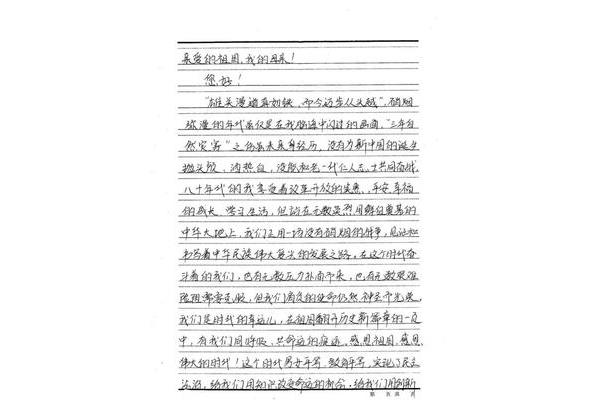 亲爱的祖国,我的母亲!
您好!
"雄关漫道真如铁,而今迈步从头越",硝烟
弥漫的年代虽仅是在我脑海中闪过的画面,"三年自
然灾害"之伤虽未亲身经历,没有为新中国的诞生
抛头颅、洒热血,没能和老一代仁人志士共同奋战,
八十年代的我享受着改革开放的实惠、平安、幸福
的成长、学习生活,但站在无数英烈用鲜血奠基的
中华大地上,我们正用一场没有硝烟的战争,见证和
书写着中华民族伟大复兴的发展之路。在这个时代奋
斗着的我们,也有无数压力扑面而来,也有无数艰难
险阻都要克服,但我们肩负的使命仍然神圣而光荣,
我们是时代的幸运儿,在祖国翻开历史新篇章的一页
中,有我们同呼吸、共命运的痕迹。感恩祖国,感恩
伟大的时代!这个时代男女平等、教育平等,实现了民主
法治,给我们用知识改变命运的机会,给我们用创新
第 页 共 页